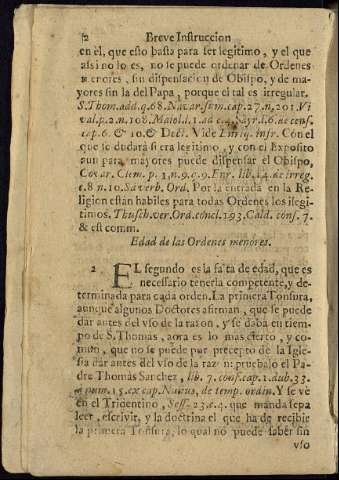 2 Breve Instruccion
en èl, que esto basta para ser legitimo, y el que
assi no lo es, no se puede ordenar de Ordenes
menores, sin dispensacion de Obispo, y de ma-
yores sin la del Papa, porque el tal es irregular.
S. Thom. add. q. 68. Navar. sum. cap. 27. n. 201. Vi
val. p. 2. n. 108. Maiol. l. 1. ad c. 4. Sayr. l. 6. de cens.
cap. 6. & 10. & Deci. Vide Enriq. infr. Con el
que se dudarà si era legitimo, y con el Exposito
aun para mayores puede dispensar el Obispo,
Covar. Clem. p. 1. n. 9. q. 9. Enr. lib. 14. de irreg.
c. 8. n. 10. Sa verb. Ord. Por la entrada en la Re-
ligion estàn habiles para todas Ordenes los ilegi-
timos. Thusch. ver. Ord. concl. 193. Cald. cons. 7.
& est comm.
Edad de las Ordenes menores.
2 EL segundo es la falta de edad, que es
necessario tenerla competente, y de-
terminada para cada orden. La primera Tonsura,
aunque algunos Doctores afirman, que se puede
dar antes del vso de la razon, y se daba en tiem-
po de S. Thomàs, aora es lo mas cierto, y co-
mun, que no se puede por precepto de la Igle-
sia dar antes del vso de la razon: pruebalo el Pa-
dre Thomàs Sanchez, lib. 7. cons. cap. 1. dub. 33.
num. 15. ex cap. Nullus, de temp. ordin. Y se vè
en el Tridentino, Sess. 23. c. 4. que manda sepa
leer, escrivir, y la doctrina el que ha de recibir
la primera Tonsura, lo qual no puede saber sin
vso